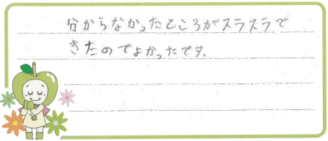 分からなかったところがスラスラで
きたのでよかったです。